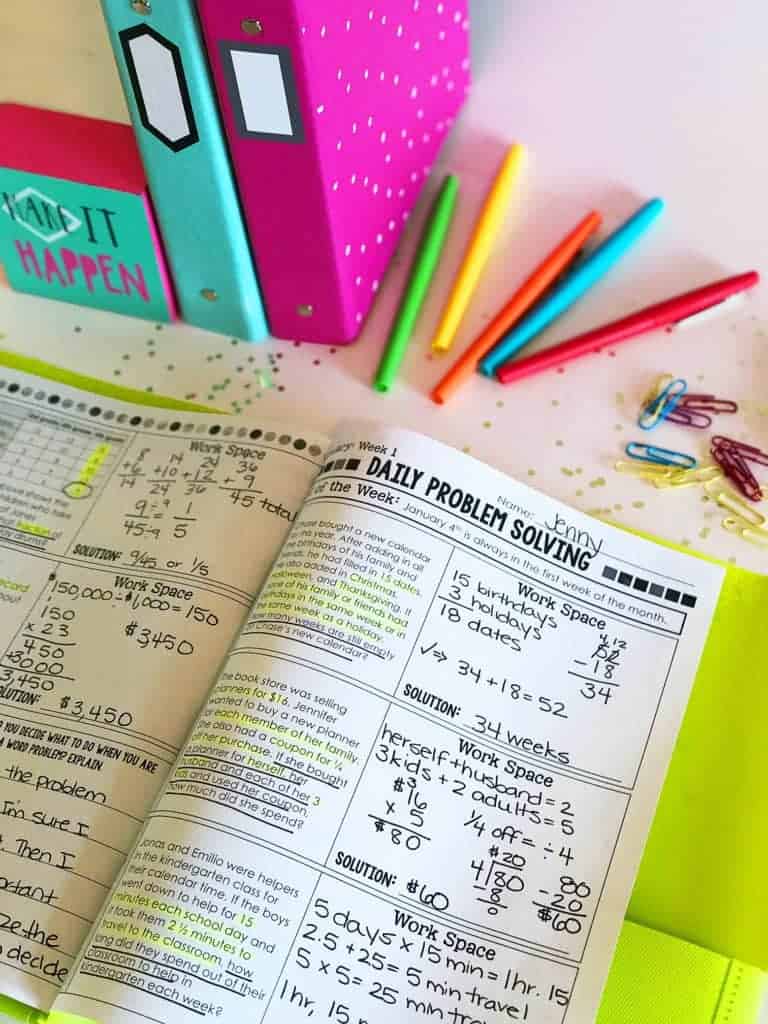 MAKE IT
HAPPEN
Work Space
8 14 24 36
+6 +10 +12 + 9
14 24 36 45 total
9 ÷9 = 1
45 ÷9 5
SOLUTION: 9/45 or 1/5
Work Space
150,000 ÷ $1,000 = 150
150
x 23
450
+3000
3,450
$3,450
SOLUTION: $3,450
YOU DECIDE WHAT TO DO WHEN YOU ARE
A WORD PROBLEM? EXPLAIN
the problem
I'm sure I
. Then I
ze the
decide
Week 1
Name: Jenny
DAILY PROBLEM SOLVING
of the Week: January 4th is always in the first week of the month.
Chase bought a new calendar
for this year. After adding in all
the birthdays of his family and
friends, he had filled in 15 dates.
He also added in Christmas,
Halloween, and Thanksgiving. If
none of his family or friends had
birthdays in the same week or in
the same week as a holiday,
how many weeks are still empty
on Chase's new calendar?
Work Space
15 birthdays
3 holidays
18 dates
4 12
52
- 18
34
✓⇒ 34 + 18 = 52
SOLUTION: 34 weeks
The book store was selling
planners for $16. Jennifer
wanted to buy a new planner
for each member of her family.
She also had a coupon for ¼
off her purchase. If she bought
a planner for herself, her
husband and each of her 3
kids and used her coupon,
how much did she spend?
Work Space
herself + husband = 2
3 kids + 2 adults = 5
$16
x 5
$80
¼ off = ÷ 4
$20
4/80
-8
0
80
- 20
$60
SOLUTION: $60
Jonas and Emilio were helpers
in the kindergarten class for
their calendar time. If the boys
went down to help for 15
minutes each school day and
it took them 2 ½ minutes to
travel to the classroom, how
long did they spend out of their
classroom to help in
kindergarten each week?
Work Space
5 days x 15 min = 1hr. 15
2.5 + 25 = 5 min travel
5 x 5 = 25 min travel
1hr, 15 m